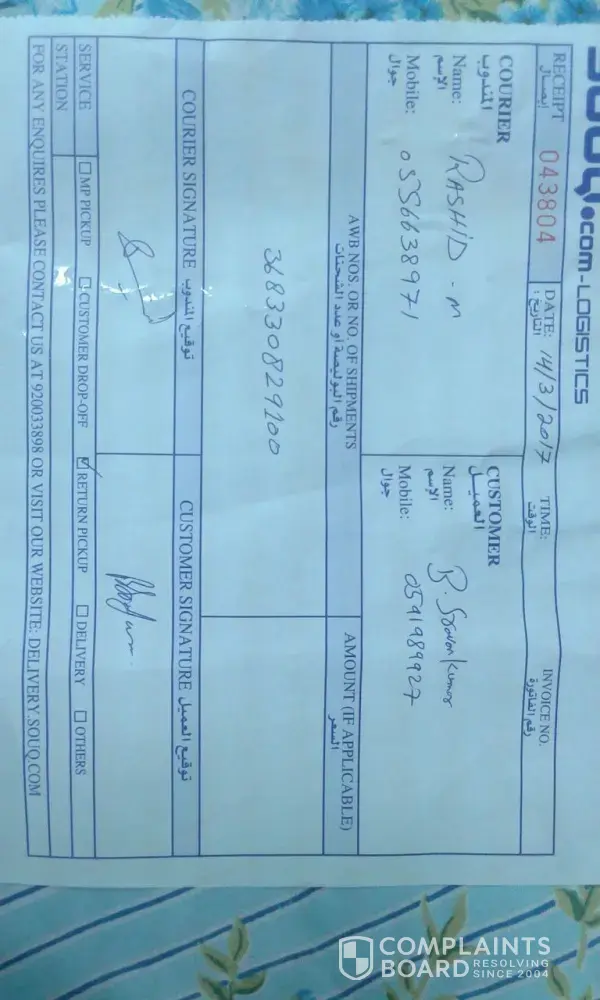 souq.com-LOGISTICS
RECEIPT 043804 DATE: 14/3/2017 TIME: INVOICE NO.
إيصال التاريخ: الوقت رقم الفاتورة
COURIER CUSTOMER
المندوب العميل
Name: RASHID - M Name: B. Sravan Kumar
الإسم الإسم
Mobile: 0556638971 Mobile: 0541989927
جوال جوال
AWB NOS. OR NO. OF SHIPMENTS AMOUNT (IF APPLICABLE)
رقم البوليصة أو عدد الشحنات السعر
368330829100
COURIER SIGNATURE توقيع المندوب CUSTOMER SIGNATURE توقيع العميل
SERVICE MP PICKUP CUSTOMER DROP-OFF RETURN PICKUP DELIVERY OTHERS
STATION
FOR ANY ENQUIRES PLEASE CONTACT US AT 920033898 OR VISIT OUR WEBSITE: DELIVERY.SOUQ.COM
COMPLAINTS
BOARD RESOLVING
SINCE 2004